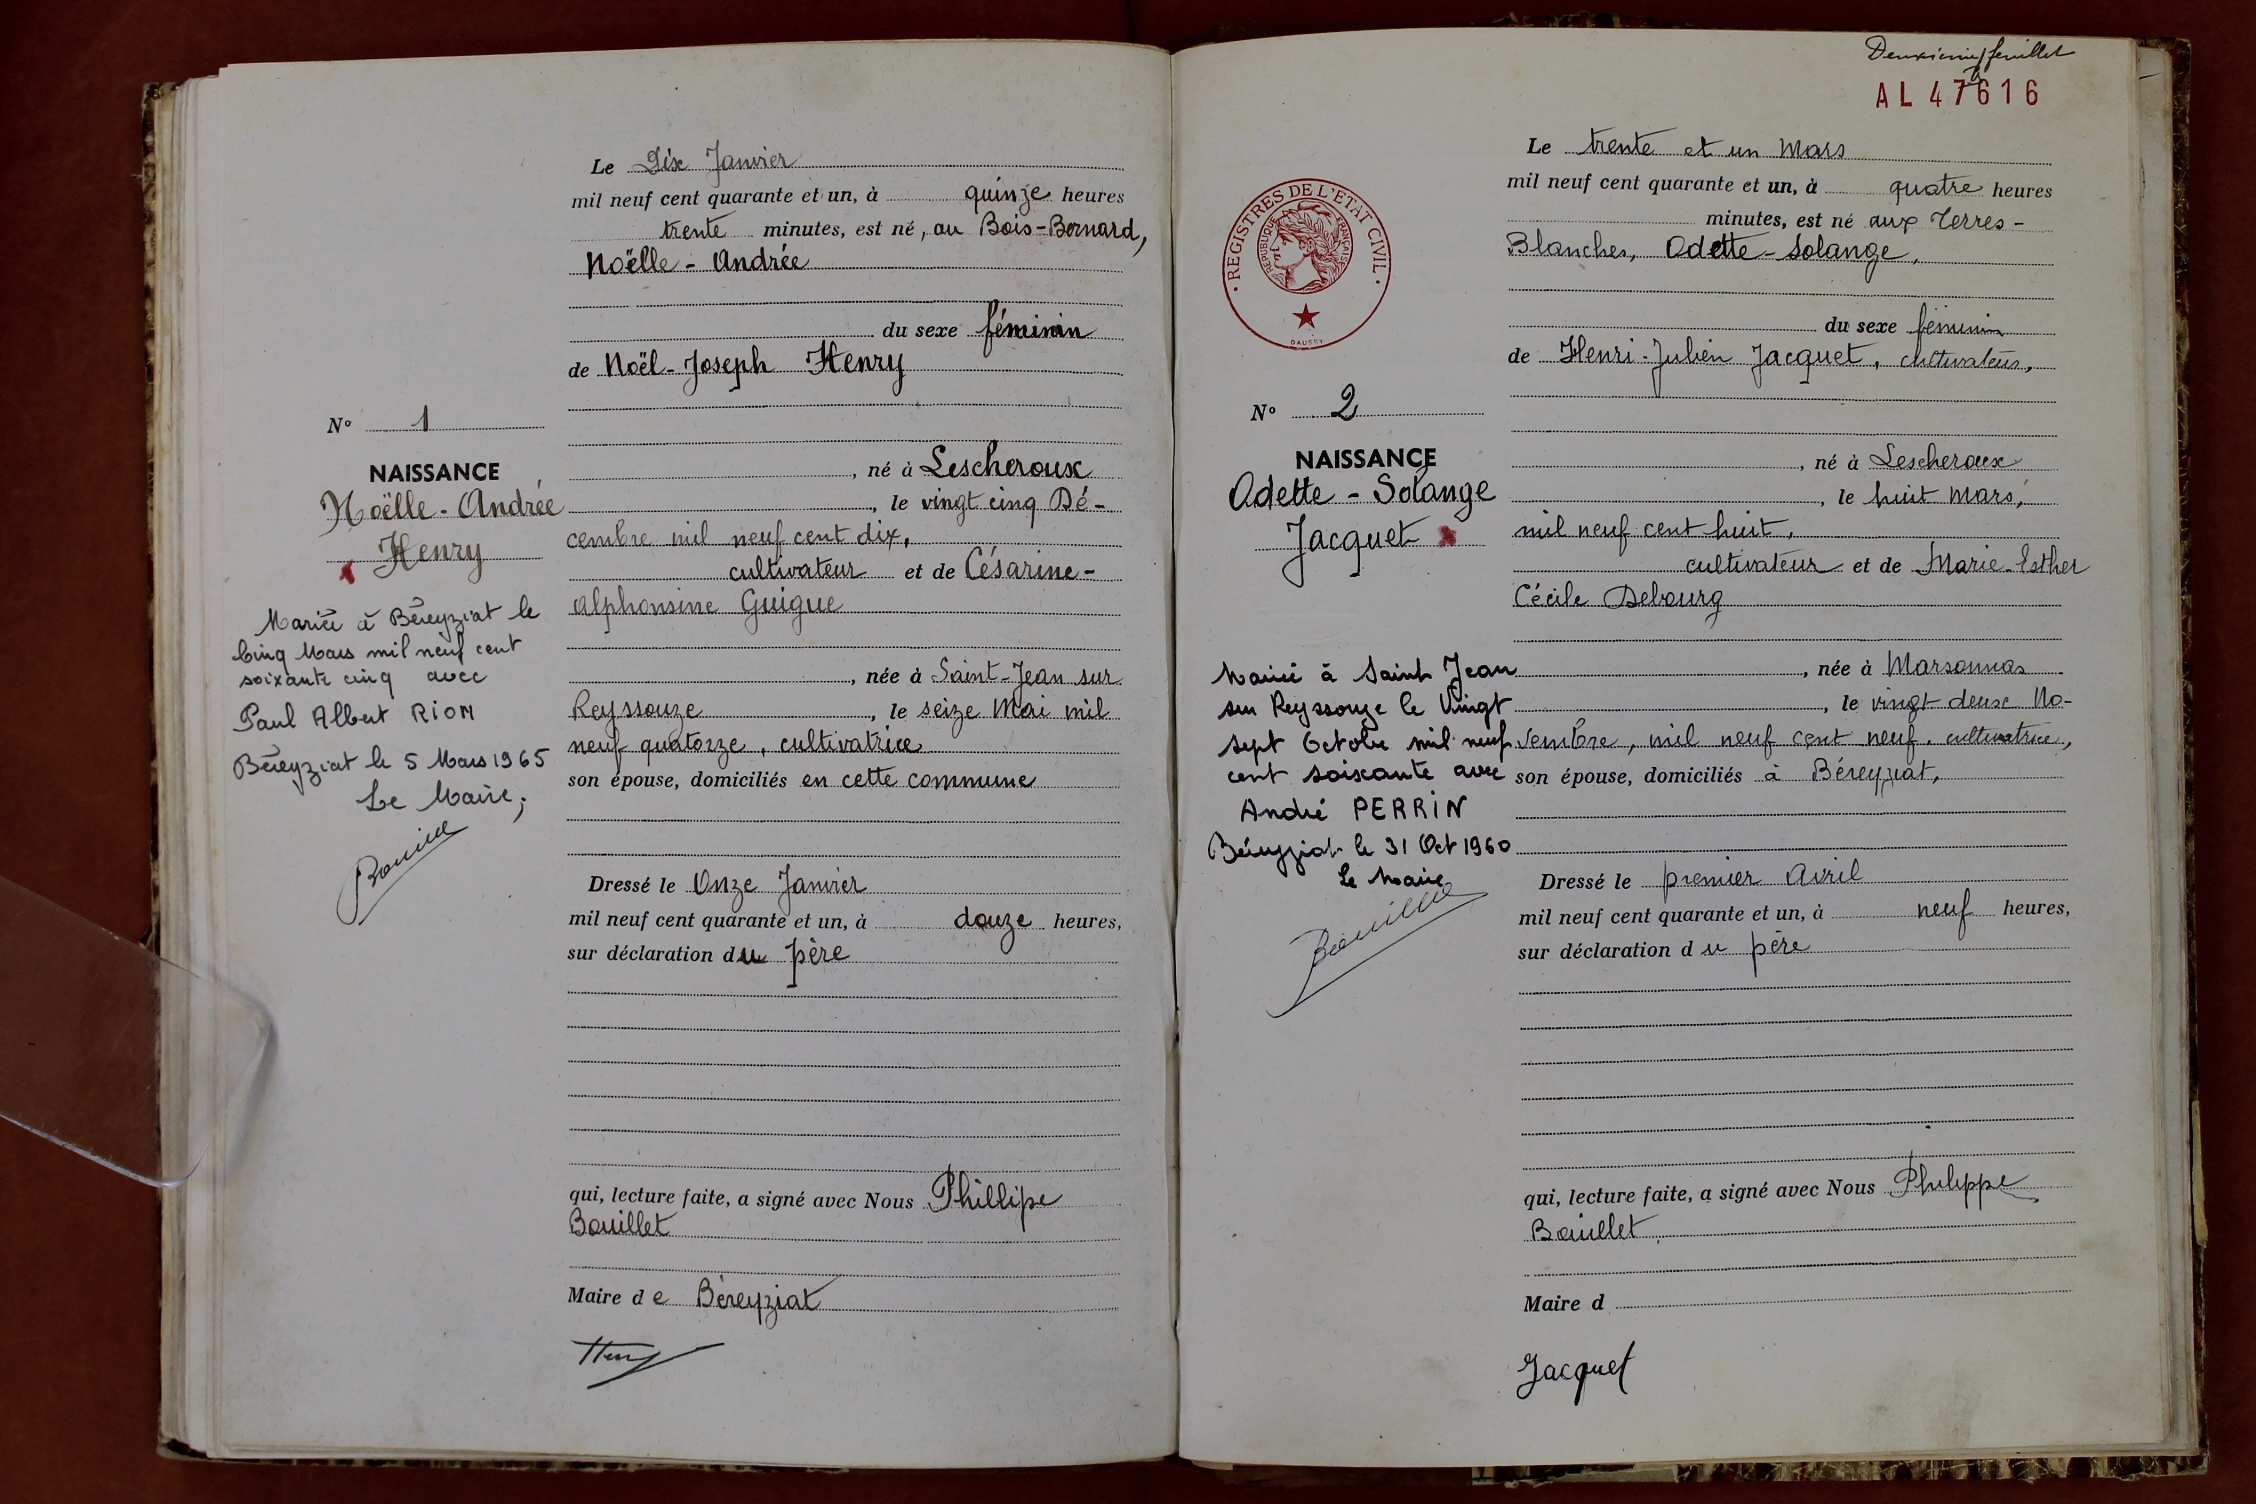 Le Dix Janvier
mil neuf cent quarante et un, à quinze heures
trente minutes, est né, au Bois-Bernard,
Noëlle - Andrée
du sexe féminin
de Noël-Joseph Henry
N° 1
NAISSANCE
Noëlle-Andrée
Henry
, né à Lescheroux
, le vingt cinq Dé-
cembre mil neuf cent dix,
cultivateur et de Césarine-
Alphonsine Guigue
, née à Saint-Jean sur
Reyssouze, le seize Mai mil
neuf quatorze, cultivatrice
son épouse, domiciliés en cette commune
Mariée à Béreyziat le
Cinq Mars mil neuf cent
soixante cinq avec
Paul Albert RIOM
Béreyziat le 5 Mars 1965
Le Maire,
Dressé le Onze Janvier
mil neuf cent quarante et un, à douze heures,
sur déclaration du père
qui, lecture faite, a signé avec Nous Phillipe
Bouillet
Maire de Béreyziat
Henry
Deuxième feuillet
AL 47616
Le trente et un Mars
mil neuf cent quarante et un, à quatre heures
minutes, est né aux Terres-
Blanches, Odette-Solange,
du sexe féminin
de Henri-Julien Jacquet, cultivateur,
· REGISTRES DE L'ETAT CIVIL ·
REPUBLIQUE FRANÇAISE
DAUSSY
N° 2
NAISSANCE
Odette - Solange
Jacquet
, né à Lescheroux
, le huit Mars,
mil neuf cent huit,
cultivateur et de Marie-Esther
Cécile Debourg
, née à Marsonnas
, le vingt deux No-
vembre, mil neuf cent neuf, cultivatrice,
son épouse, domiciliés à Béreyziat,
Mariée à Saint Jean
sur Reyssouze le Vingt
sept Octobre mil neuf
cent soixante avec
André PERRIN
Béreyziat le 31 Oct 1960
Le Maire
Dressé le premier Avril
mil neuf cent quarante et un, à neuf heures,
sur déclaration du père
qui, lecture faite, a signé avec Nous Philippe
Bouillet,
Maire d
Jacquet